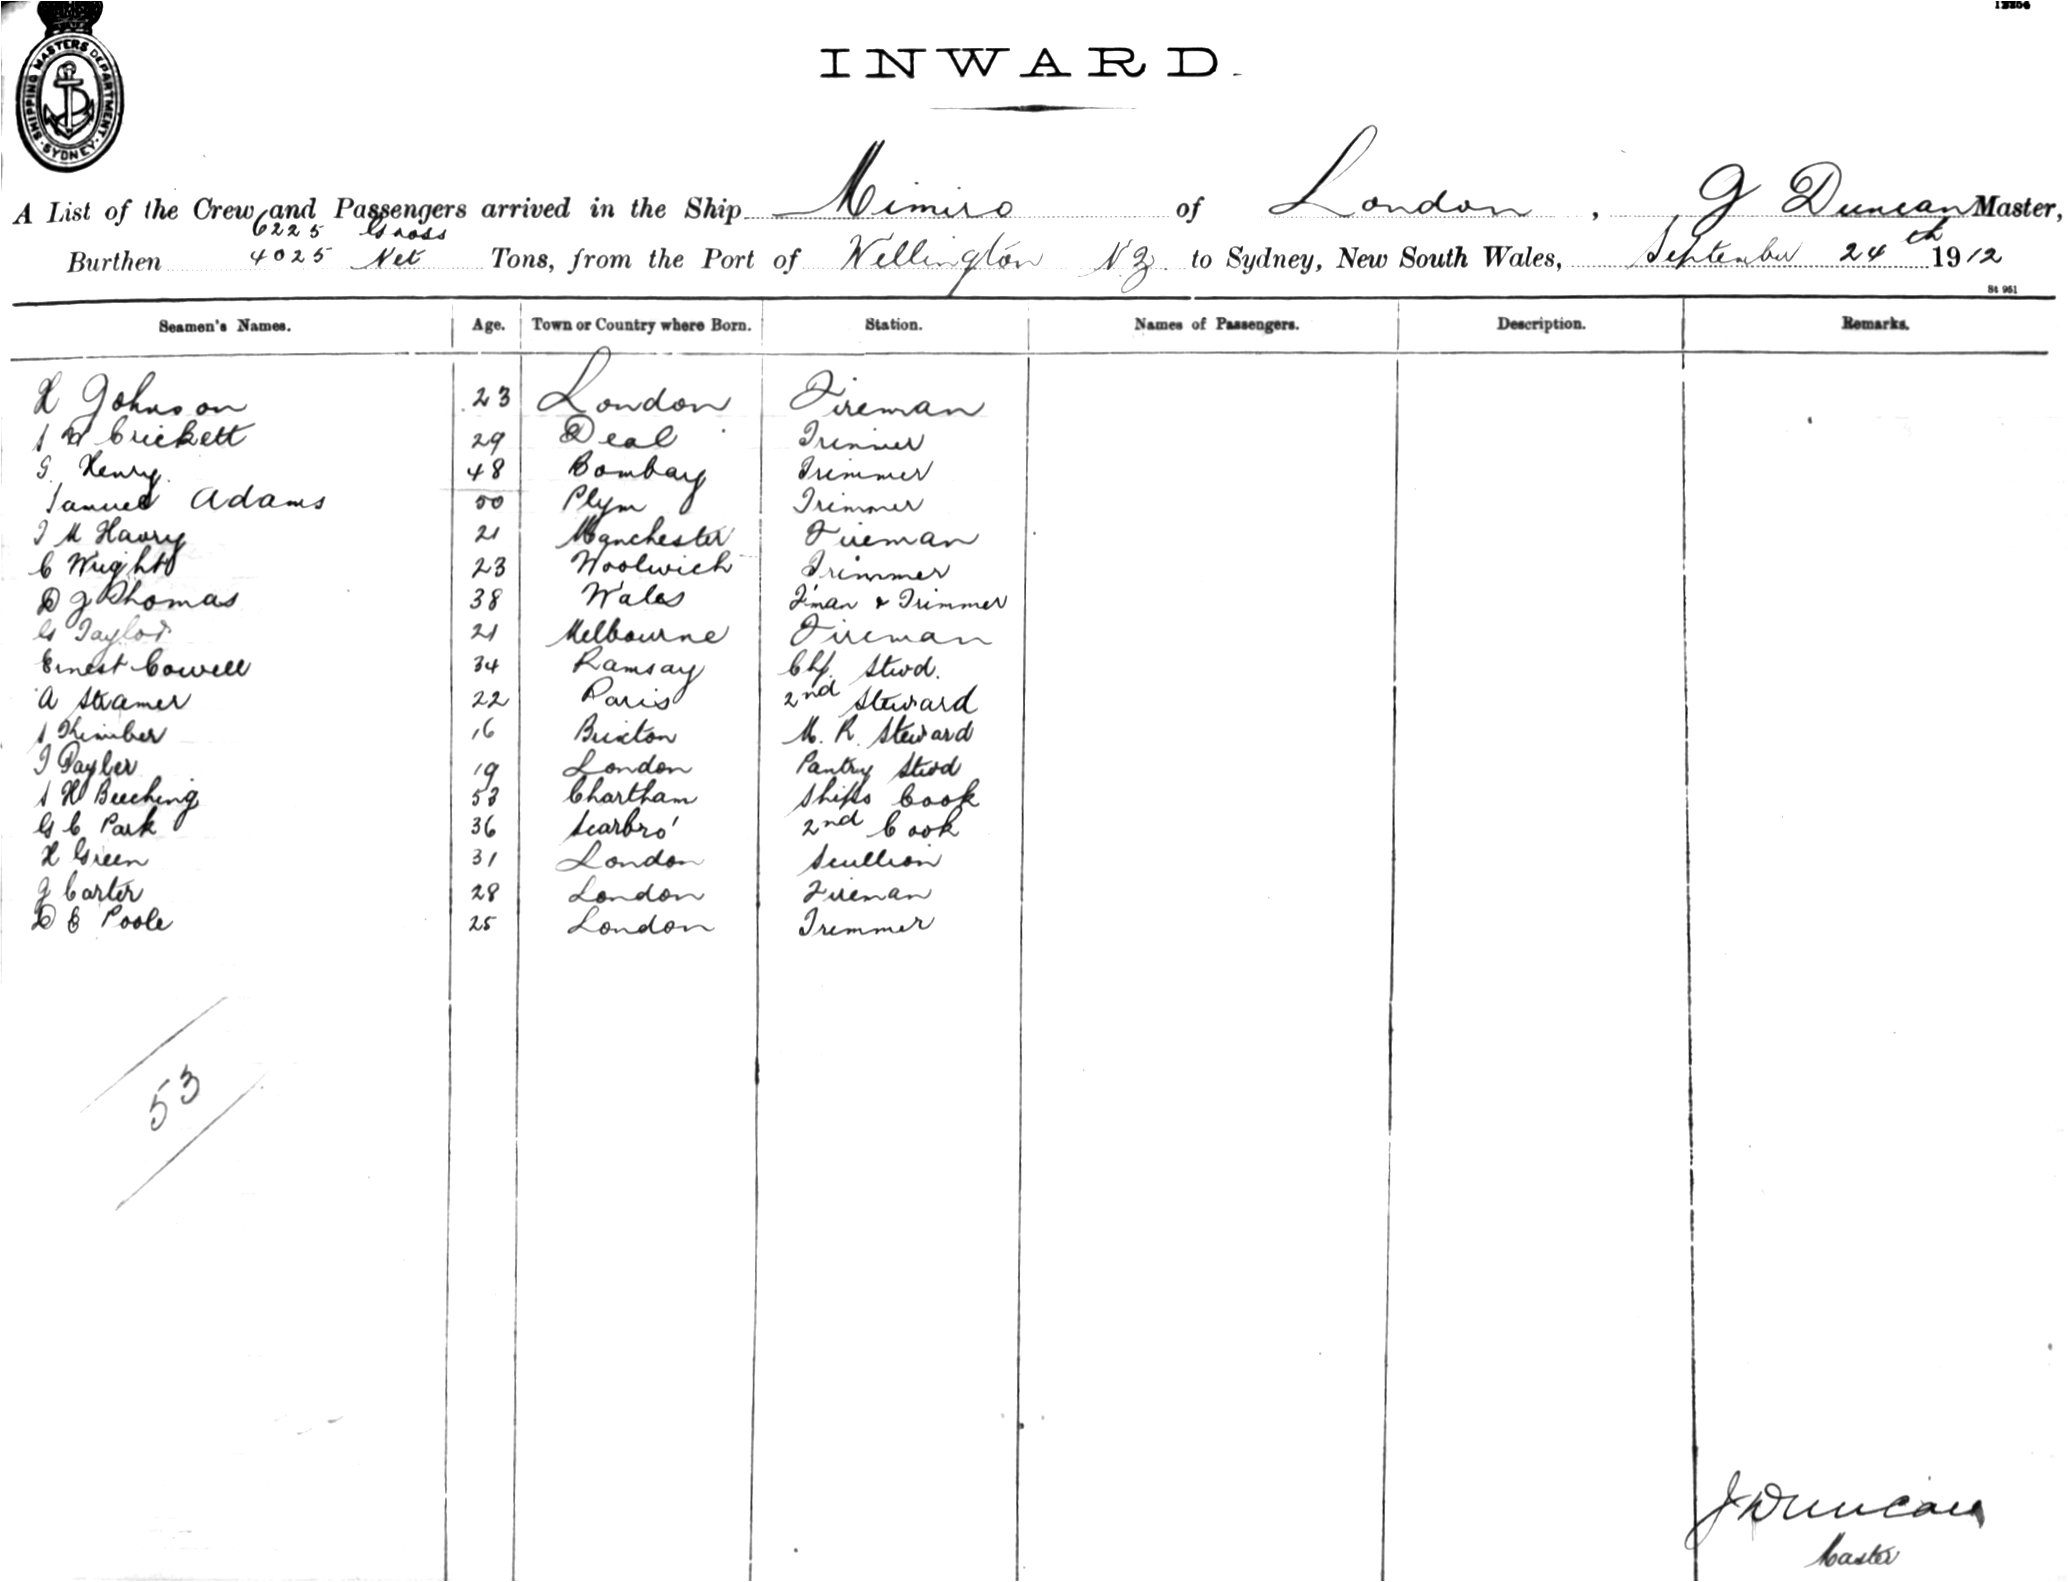 12204
SHIPPING MASTERS DEPARTMENT
SYDNEY
INWARD.
A List of the Crew and Passengers arrived in the Ship Mimiro of London, J Duncan Master,
6225 Gross
Burthen 4025 Net Tons, from the Port of Wellington NZ to Sydney, New South Wales, September 24th 1912
St 951
Seamen's Names. Age. Town or Country where Born. Station. Names of Passengers. Description. Remarks.
H Johnson 23 London Fireman
S W Crickett 29 Deal Trimmer
G Henry 48 Bombay Trimmer
Samuel Adams 50 Plym Trimmer
21 Manchester Fireman
C Wright 23 Woolwich Trimmer
D J Thomas 38 Wales F'man & Trimmer
G Taylor 21 Melbourne Fireman
Ernest Cowell 34 Ramsay Chf. Stwd.
A 22 Paris 2nd Steward
S Kimber 16 Brixton M. R. Steward
19 London Pantry Stwd
S H Beeching 53 Chartham Ships Cook
G C Park 36 Scarbro' 2nd Cook
H Green 31 London Scullion
J Carter 28 London Fireman
D E Poole 25 London Trimmer
53
J Duncan
Master